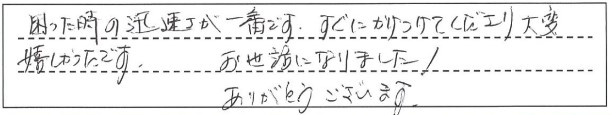 困った時の迅速さが一番です。すぐにかけつけてくださり大変
嬉しかったです。 お世話になりました！
ありがとうございます。